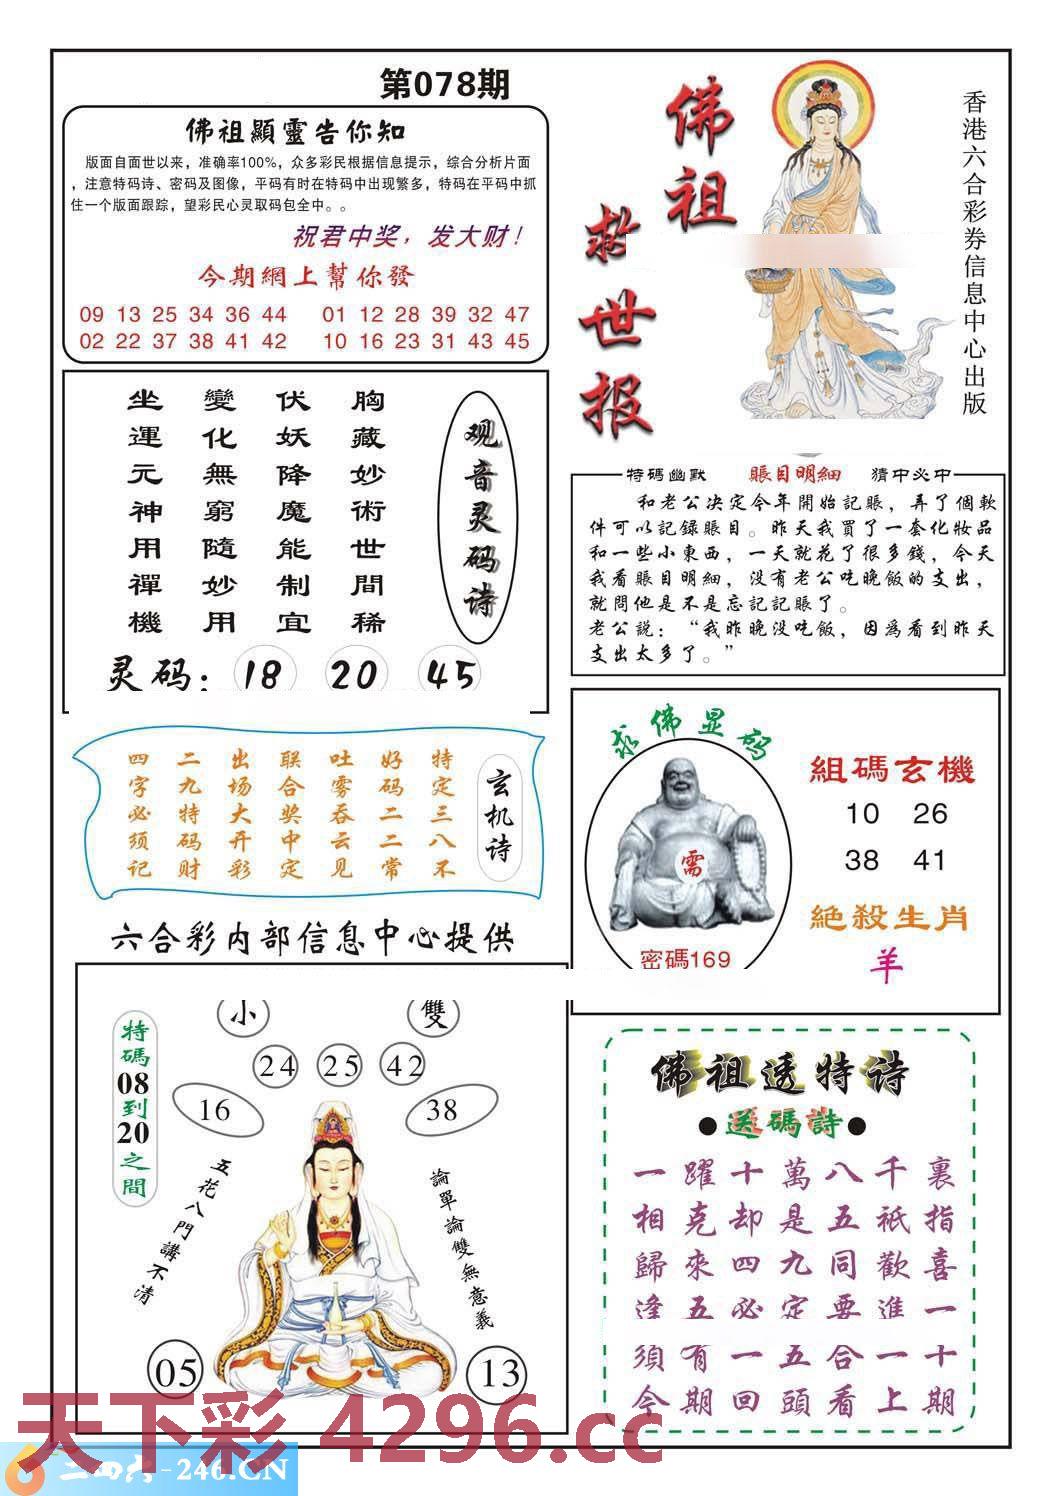 第078期
佛祖顯靈告你知
版面自面世以来，准确率100%，众多彩民根据信息提示，综合分析片面
，注意特码诗、密码及图像，平码有时在特码中出现繁多，特码在平码中抓
住一个版面跟踪，望彩民心灵取码包全中。。
祝君中奖，发大财！
今期網上幫你發
09 13 25 34 36 44 01 12 28 39 32 47
02 22 37 38 41 42 10 16 23 31 43 45
佛祖
救世报
香港六合彩券信息中心出版
观音灵码诗
胸藏妙術世間稀
伏妖降魔能制宜
變化無窮隨妙用
坐運元神用禪機
灵码：18 20 45
特碼幽默 賬目明細 猜中必中
和老公决定今年開始記賬，弄了個軟
件可以記録賬目。昨天我買了一套化妝品
和一些小東西，一天就花了很多錢，今天
我看賬目明細，没有老公吃晚飯的支出，
就問他是不是忘記記賬了。
老公説：“我昨晚没吃飯，因爲看到昨天
支出太多了。”
玄机诗
特定三八不
好码二二常
吐雾吞云见
联合奖中定
出场大开彩
二九特码财
四字必须记
求佛显码
需
密碼169
組碼玄機
10 26
38 41
絕殺生肖
羊
六合彩内部信息中心提供
特碼08到20之間
小 雙
24 25 42
16 38
五花八門講不清
論單論雙無意義
05 13
佛祖透特诗
●送碼詩●
一躍十萬八千裏
相克却是五祇指
歸來四九同歡喜
逢五必定要進一
須有一五合一十
今期回頭看上期
天下彩 4296.cc
二四六-246.CN